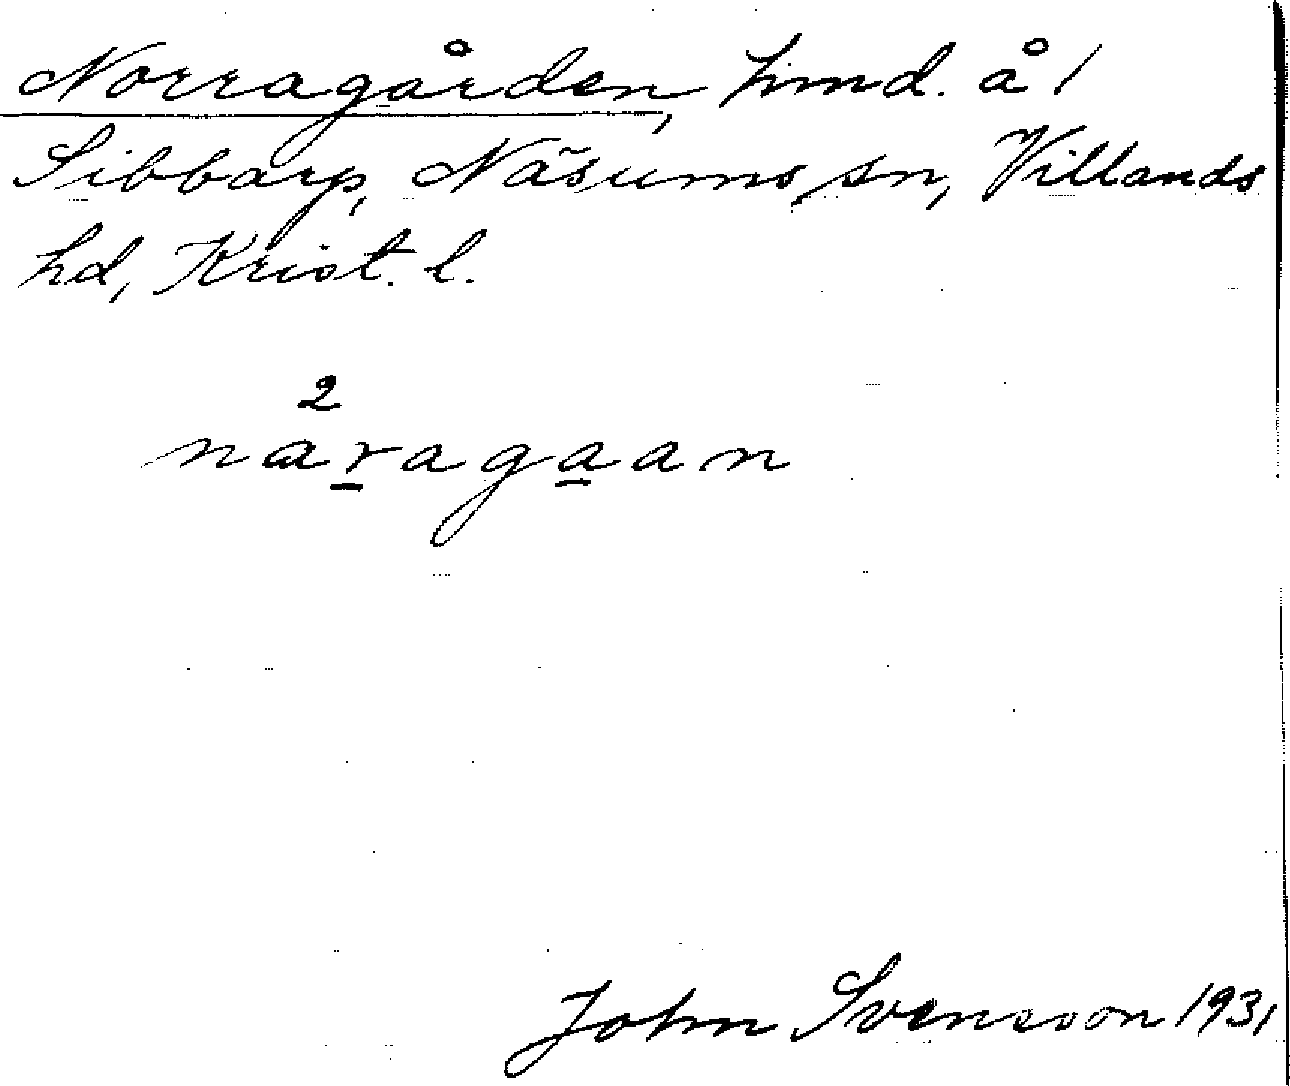 Norragården, hmd. å 1
Sibbarp, Näsums sn, Villands
hd, Krist. l.
2
naragaan
John Svensson 1931